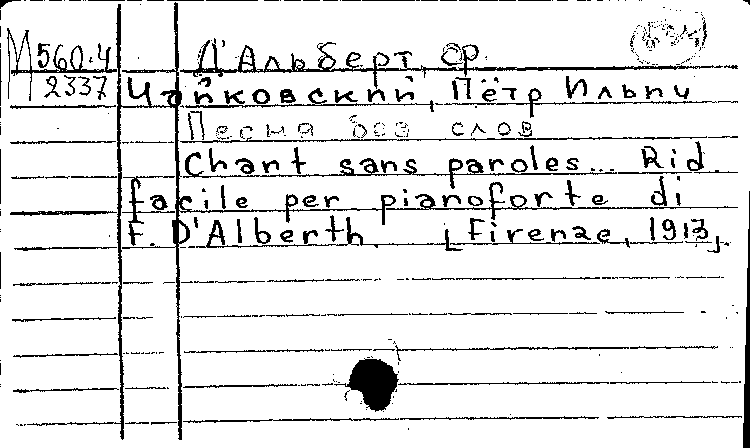 М 560.4 Д'Альберт, Ф.
2337 Чайковский, Пётр Ильич
Песня без слов
Chant sans paroles... Rid.
facile per pianoforte di
F. D'Alberth. [Firenze, 1913].